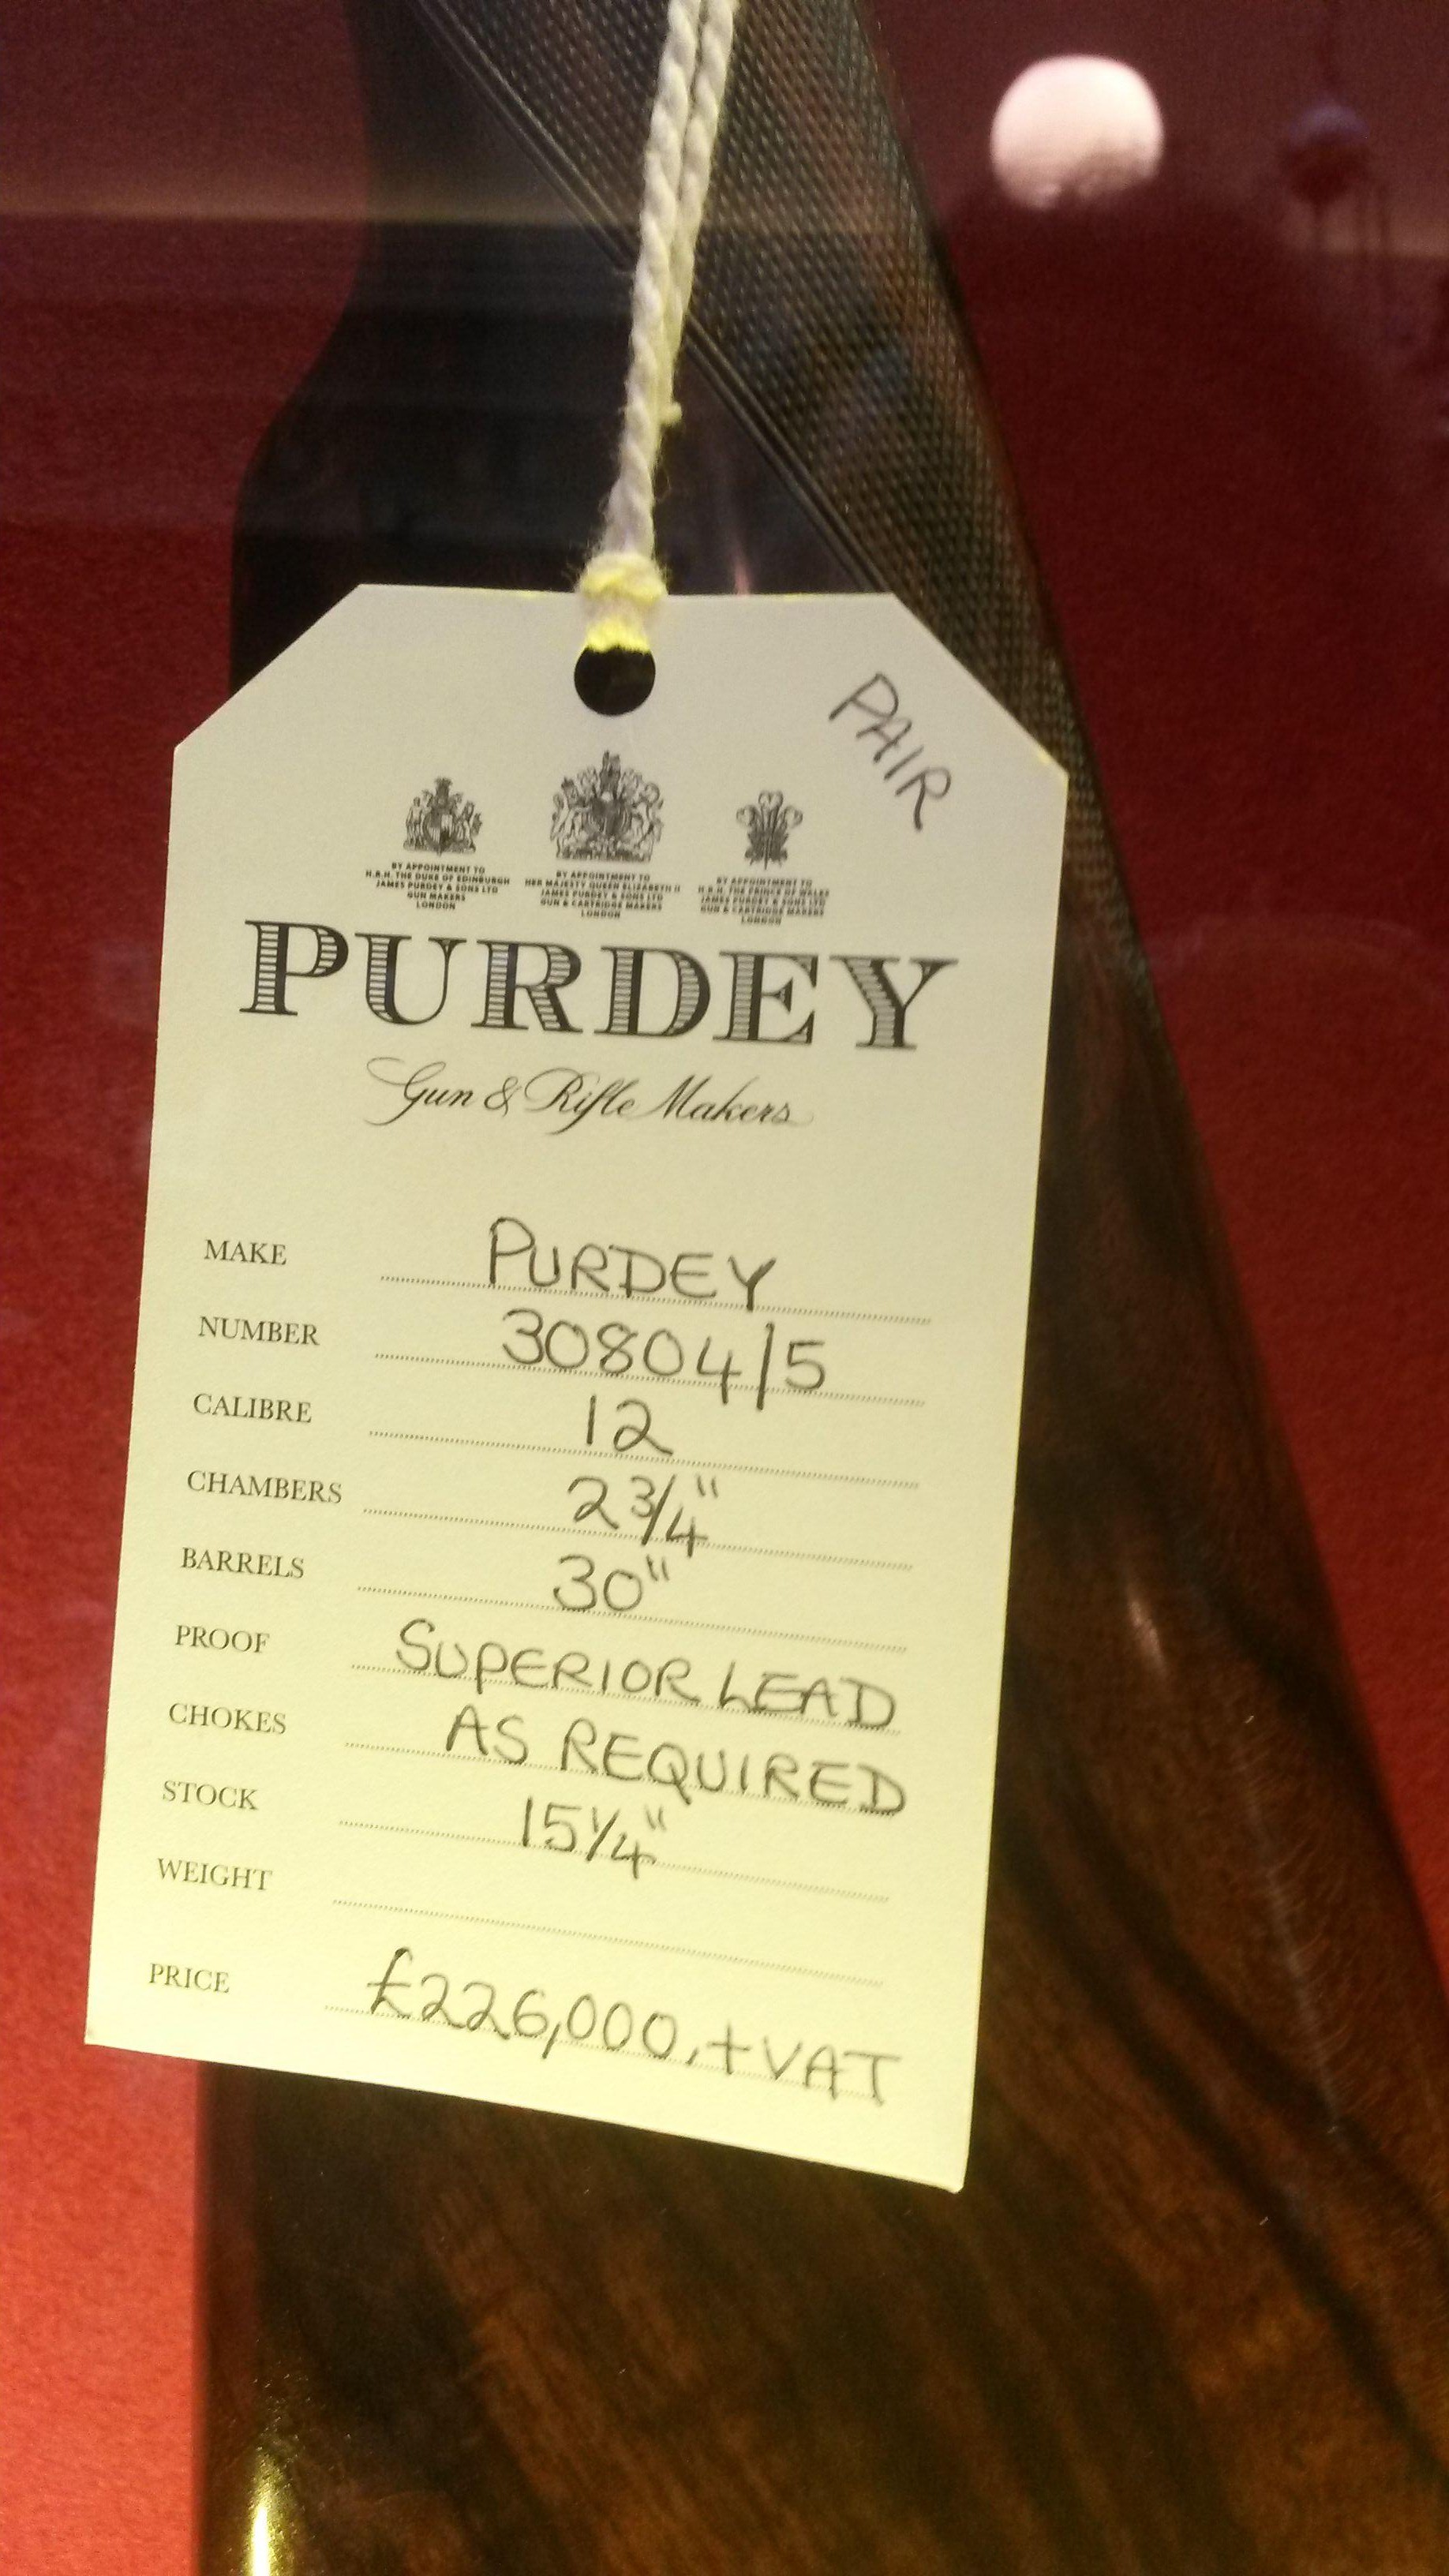 PAIR
BY APPOINTMENT TO
H.R.H. THE DUKE OF EDINBURGH
JAMES PURDEY & SONS LTD
GUN MAKERS
LONDON
BY APPOINTMENT TO
HER MAJESTY QUEEN ELIZABETH II
JAMES PURDEY & SONS LTD
GUN & CARTRIDGE MAKERS
LONDON
BY APPOINTMENT TO
H.R.H. THE PRINCE OF WALES
JAMES PURDEY & SONS LTD
GUN & CARTRIDGE MAKERS
LONDON
PURDEY
Gun & Rifle Makers
MAKE PURDEY
NUMBER 30804/5
CALIBRE 12
CHAMBERS 2 3/4"
BARRELS 30"
PROOF SUPERIOR LEAD
CHOKES AS REQUIRED
STOCK 15 1/4"
WEIGHT
PRICE £226,000.+VAT